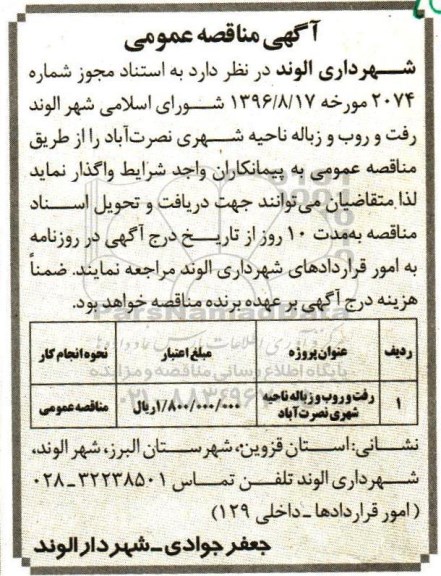 آگهی مناقصه عمومی
شهرداری الوند در نظر دارد به استناد مجوز شماره
۲۰۷۴ مورخه ۱۳۹۶/۸/۱۷ شورای اسلامی شهر الوند
رفت و روب و زباله ناحیه شهری نصرت‌آباد را از طریق
مناقصه عمومی به پیمانکاران واجد شرایط واگذار نماید
لذا متقاضیان می‌توانند جهت دریافت و تحویل اسناد
مناقصه به‌مدت ۱۰ روز از تاریخ درج آگهی در روزنامه
به امور قراردادهای شهرداری الوند مراجعه نمایند. ضمناً
هزینه درج آگهی بر عهده برنده مناقصه خواهد بود.
ParsNamadData
ردیف عنوان پروژه مبلغ اعتبار نحوه انجام کار
پایگاه اطلاع رسانی مناقصه و مزایده
۱ رفت و روب و زباله ناحیه شهری نصرت آباد ۱/۸۰۰/۰۰۰/۰۰۰ریال مناقصه عمومی
نشانی: استان قزوین، شهرستان البرز، شهر الوند،
شهرداری الوند تلفن تماس ۳۲۲۳۸۵۰۱-۰۲۸
(امور قراردادها -داخلی ۱۲۹)
جعفر جوادی - شهردار الوند